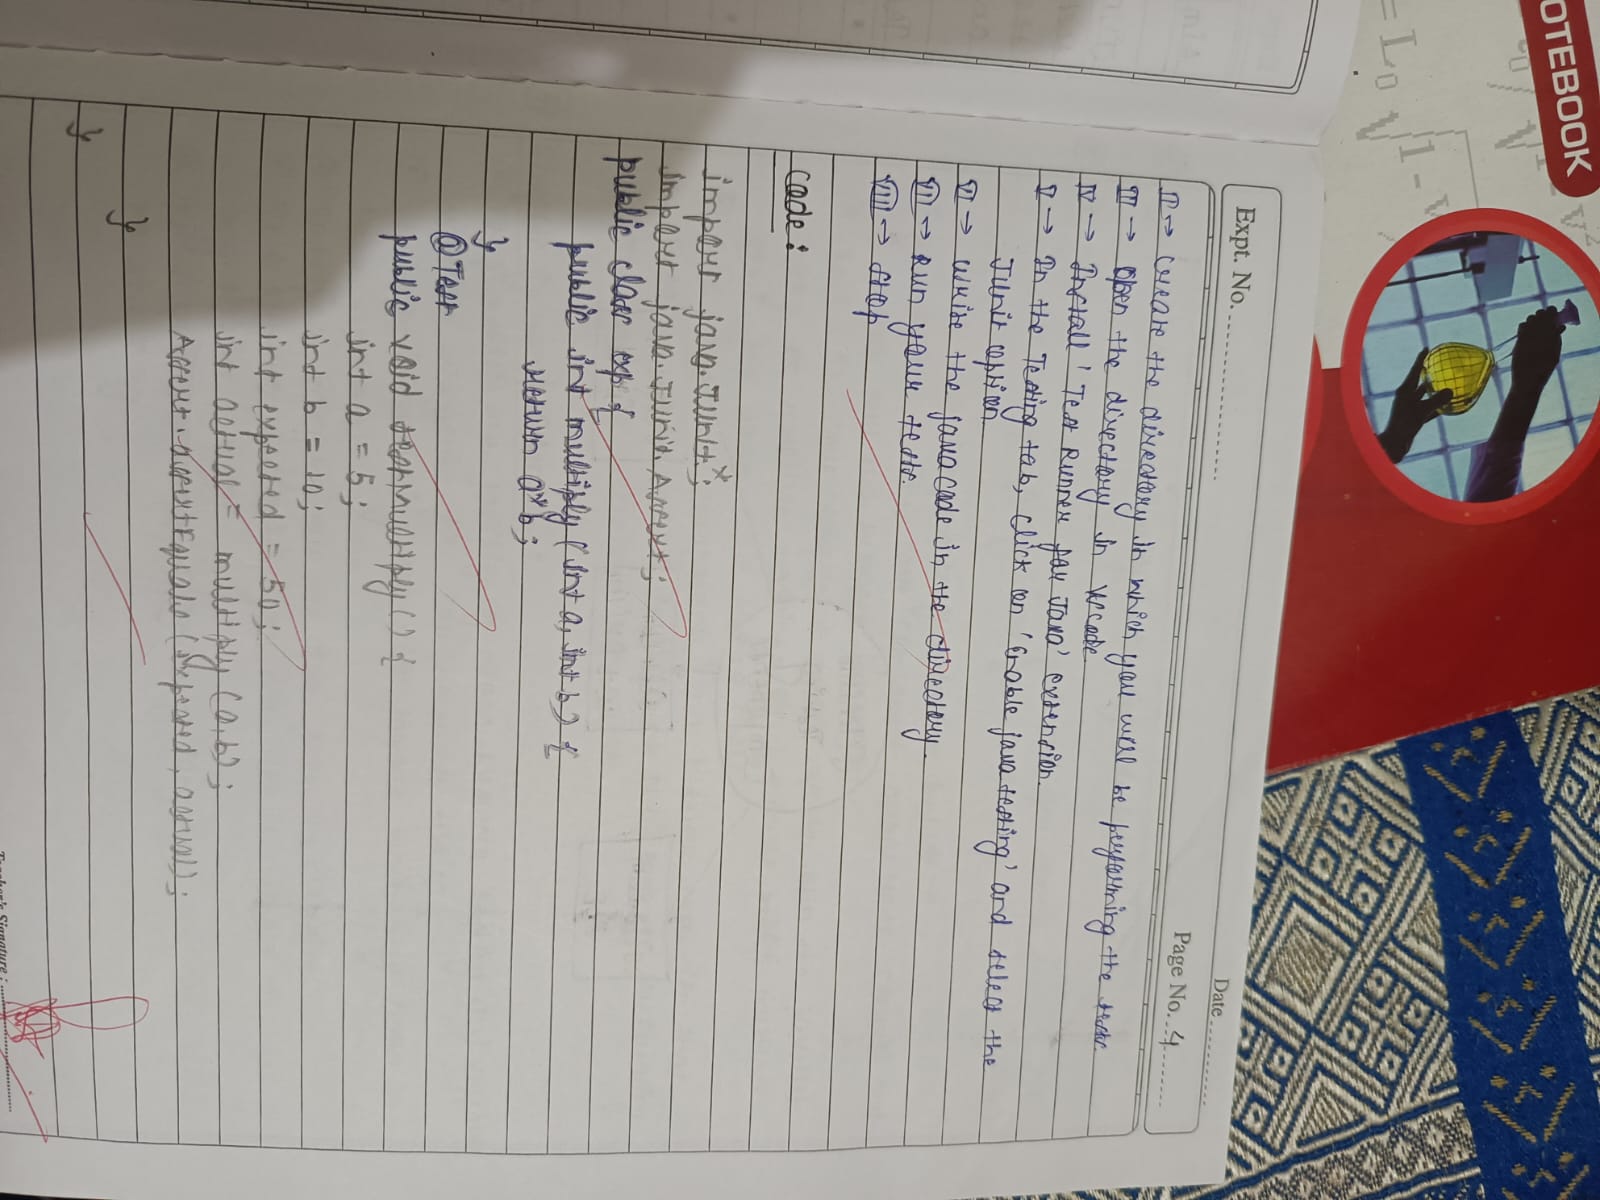 OTEBOOK
Expt. No.
Date
Page No. 4
II → Create the directory in which you will be performing the tests.
III → Open the directory in VS code.
IV → Install 'Test Runner for Java' extension.
V → In the Testing tab, click on 'enable java testing' and select the
Junit option.
VI → Write the java code in the directory.
VII → Run your tests.
VIII → Stop
Code:
import java.JUnit.*;
import java.JUnit.Assert;
public class exp {
public int multiply (int a, int b) {
return a*b;
}
@Test
public void testMultiply() {
int a = 5;
int b = 10;
int expected = 50;
int actual = multiply (a,b);
Assert.assertEquals (expected, actual);
}
}
Teacher's Signature :